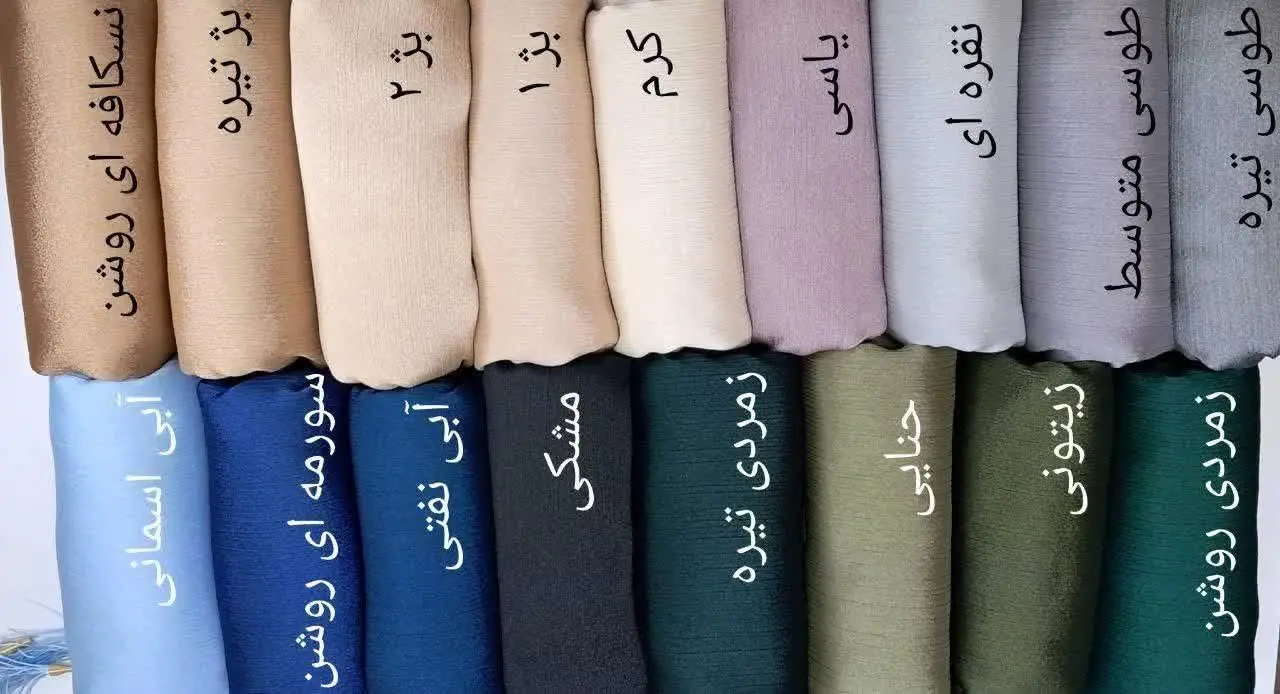 نسکافه ای روشن
بژ تیره
بژ ۲
بژ ۱
کرم
یاسی
نقره ای
طوسی متوسط
طوسی تیره
آبی اسمانی
سورمه ای روشن
آبی نفتی
مشکی
زمردی تیره
حنایی
زیتونی
زمردی روشن